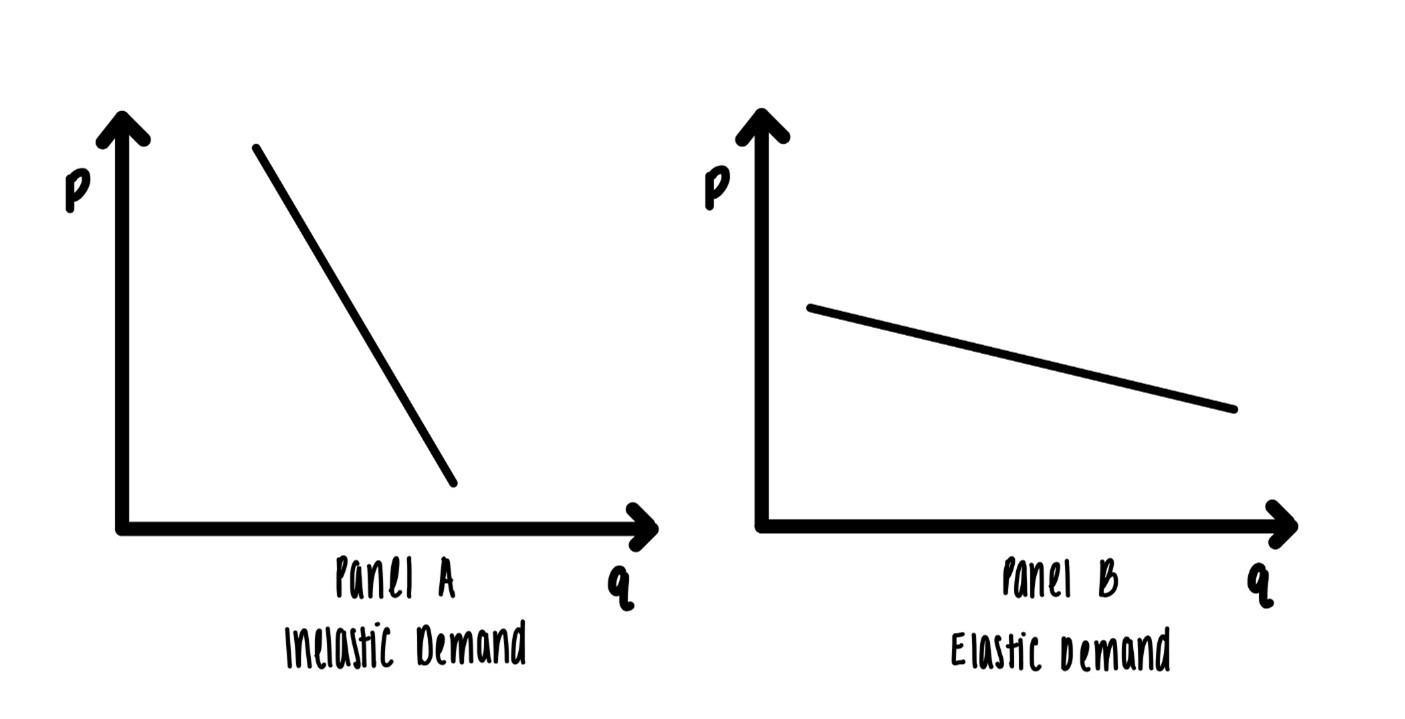 P
P
q
q
Panel A
Inelastic Demand
Panel B
Elastic Demand